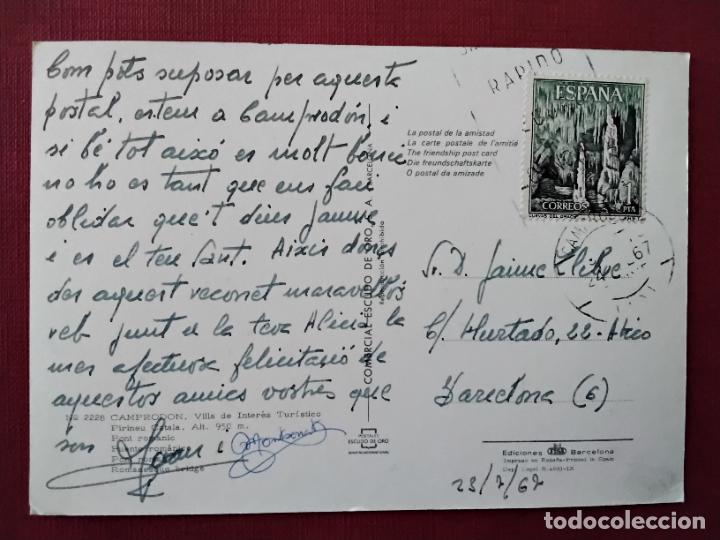 Com pots suposar per aquesta
postal, estem a Camprodón, i
si bé tot aixó es molt bonic
no ho es tant que ens faci
oblidar que't dius Jaume
i es el teu Sant. Aixis doncs
des aquest reconet maravellós
reb junt a la teva Alicia la
mes afectuosa felicitasió de
aquestos amics vostres que
són Joan i Montserrat
Nº 2228 CAMPRODON, Villa de Interés Turístico
Pirineu Català. Alt. 950 m.
Pont romànic
Puente románico
Pont roman
Romanesque bridge
COMERCIAL ESCUDO DE ORO, S. A. BARCELONA
Reproducción prohibida
POSTALES
ESCUDO DE ORO
La postal de la amistad
La carte postale de l'amitié
The friendship post card
Die freundschaftskarte
O postal da amizade
RAPIDO
ESPAÑA
CORREOS
1 PTA
CUEVAS DEL DRACH
67
Sr. D. Jaime
C/ Hurtado, 22-Atico
Barcelona (6)
Ediciones FISA Barcelona
Impreso en España-Printed in Spain
23/7/67
todocoleccion.net